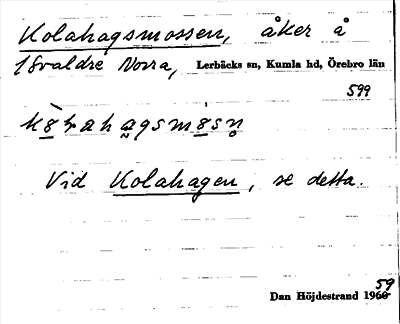 Kolahagsmossen, åker å
Isvaldre Norra, Lerbäcks sn, Kumla hd, Örebro län
599
Vid Kolahagen, se detta.
59
Dan Höjdestrand 1960